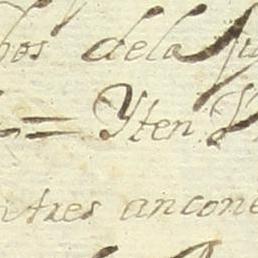 hos dela
= Yten
ntres ancone